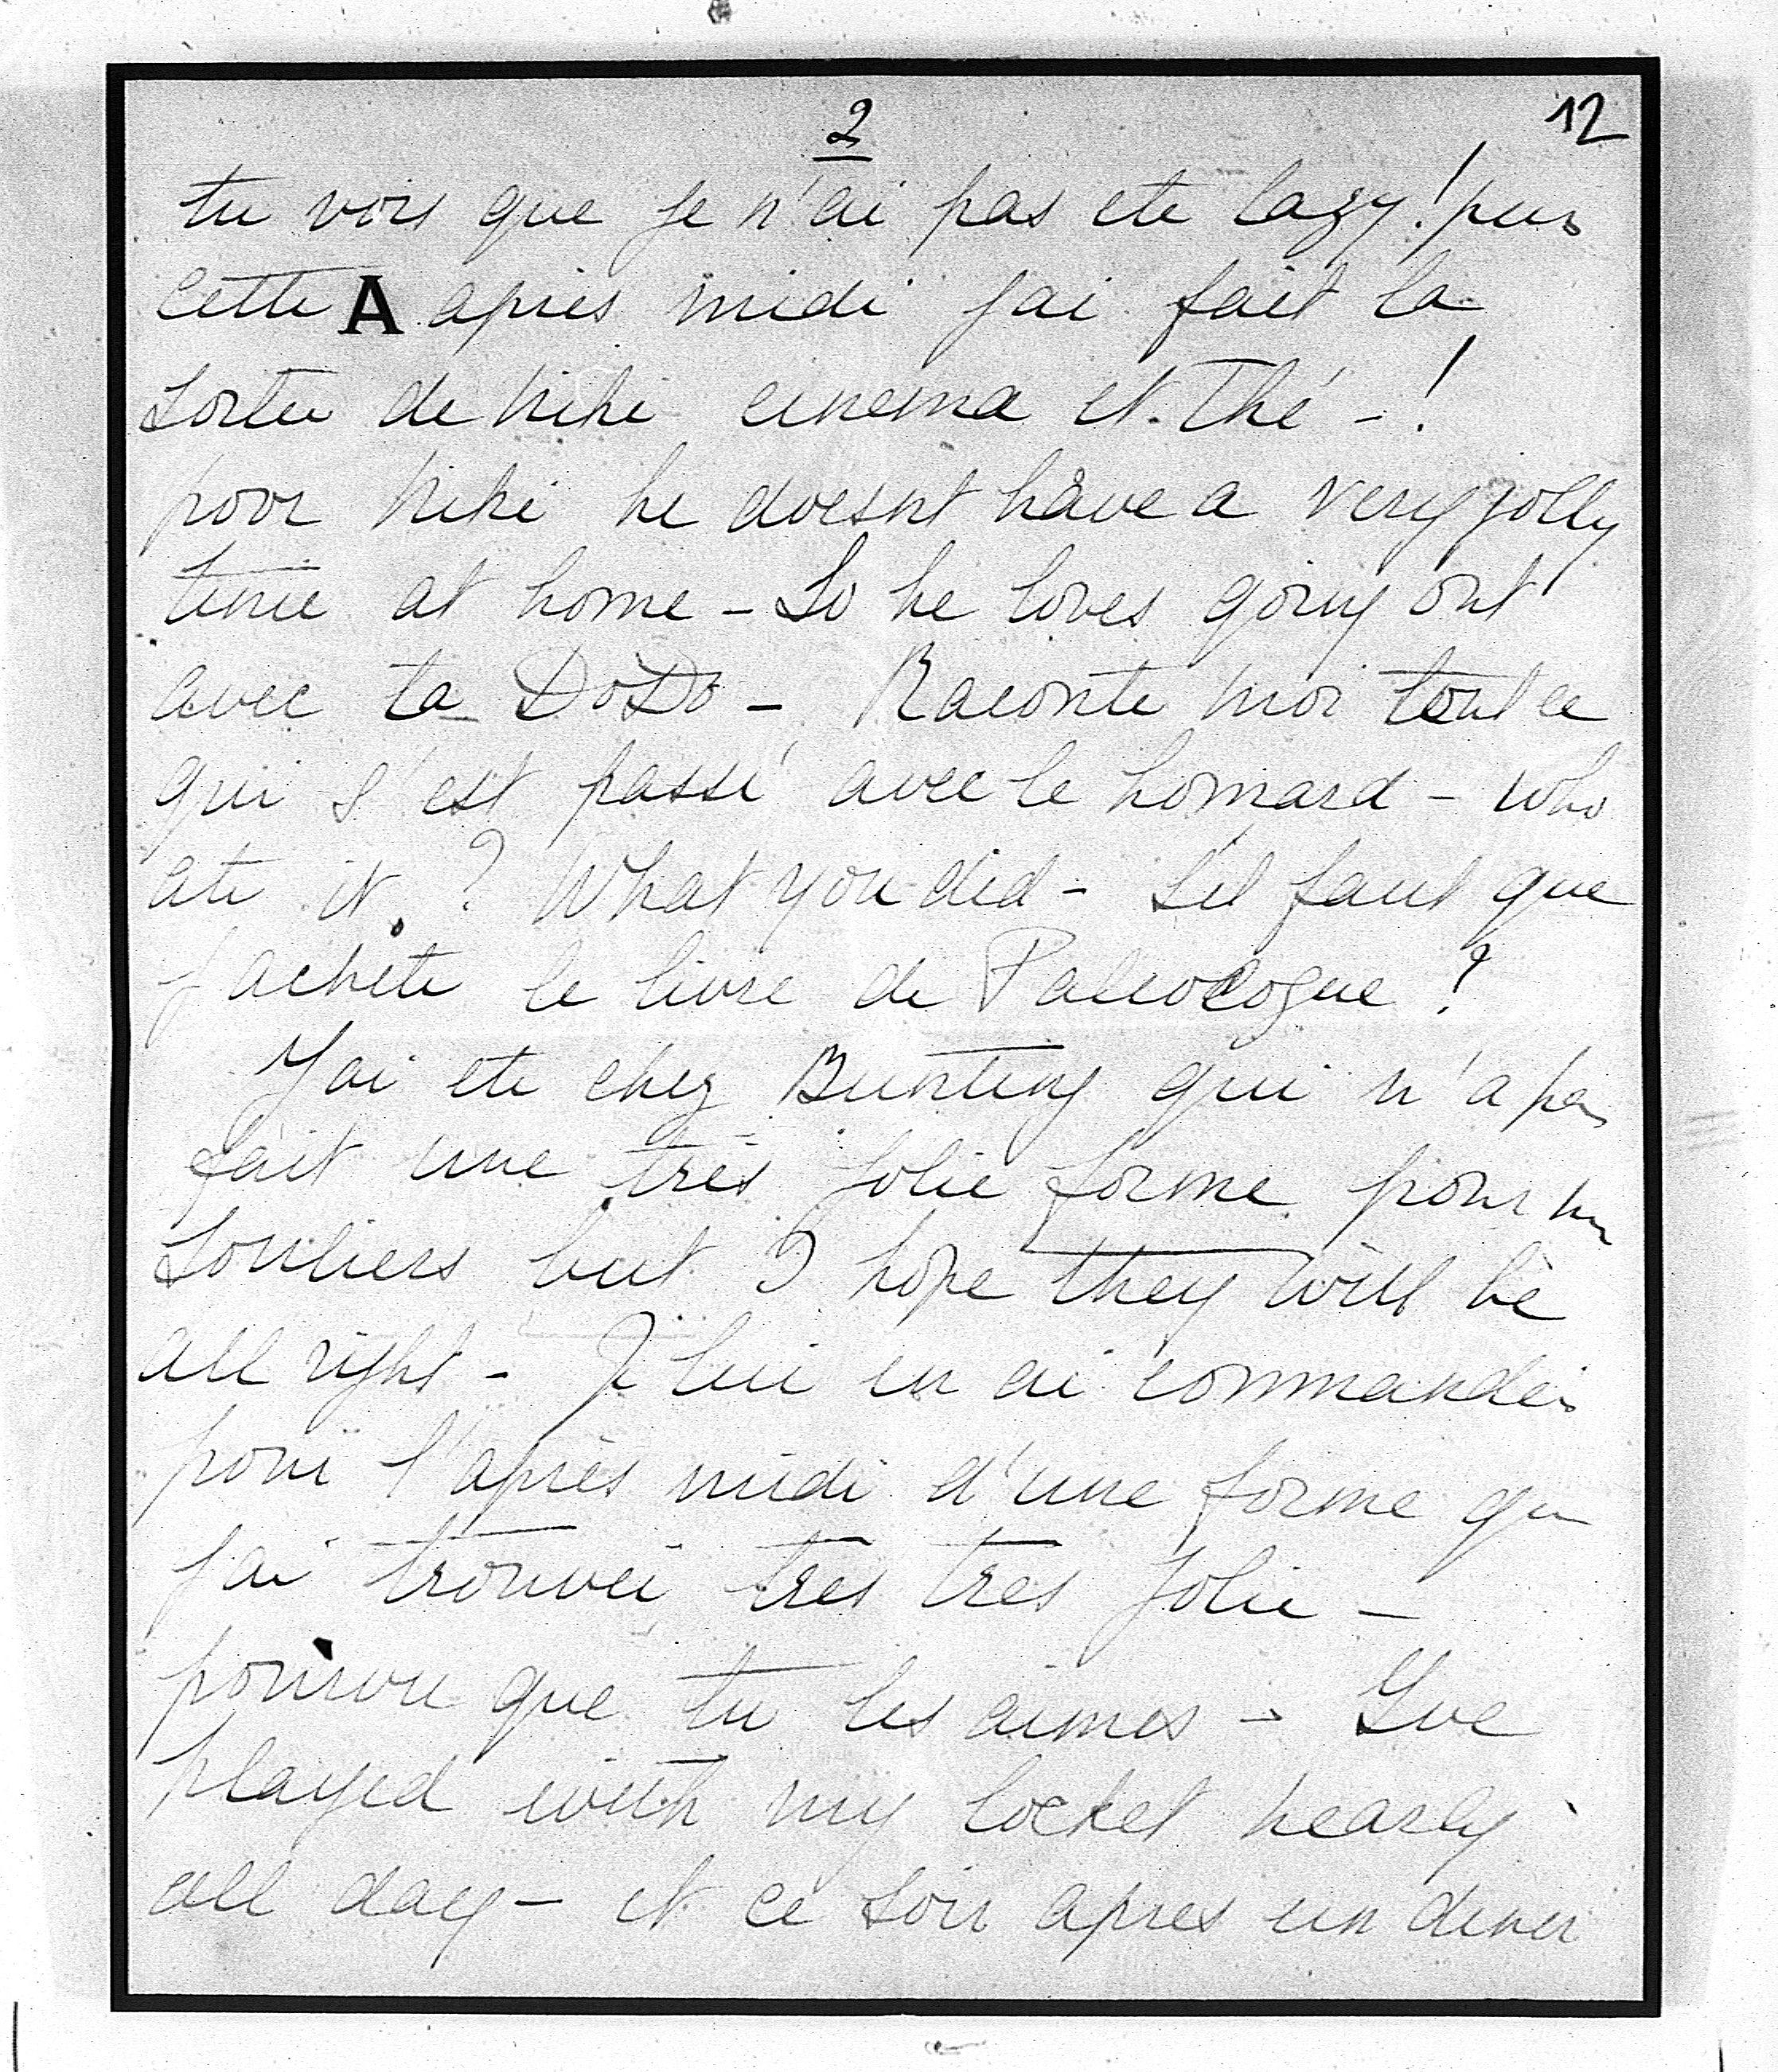 2
12
tu vois que je n'ai pas ete lazy! puis
cette A apres midi j'ai fait la
sortie de Niki cinema et Thé - !
poor Niki he doesnt have a very jolly
time at home - So he loves going out
avec ta DoDo - Raconte moi tout ce
qui s'est passé avec le homard - who
ate it? What you did - S'il faut que
j'achete le livre de Paleologue?
J'ai ete chez Bunting qui n'a pas
fait une très jolie forme pour
souliers but I hope they will be
all right - Je lui en ai commandés
pour l'après midi d'une forme que
j'ai trouvée tres tres jolie -
pourvu que tu les aimes - Ive
played with my locket nearly
all day - et ce soir apres un diner